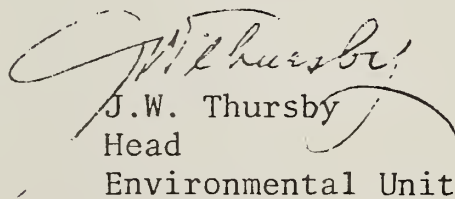 JWThursby
J.W. Thursby
Head
Environmental Unit